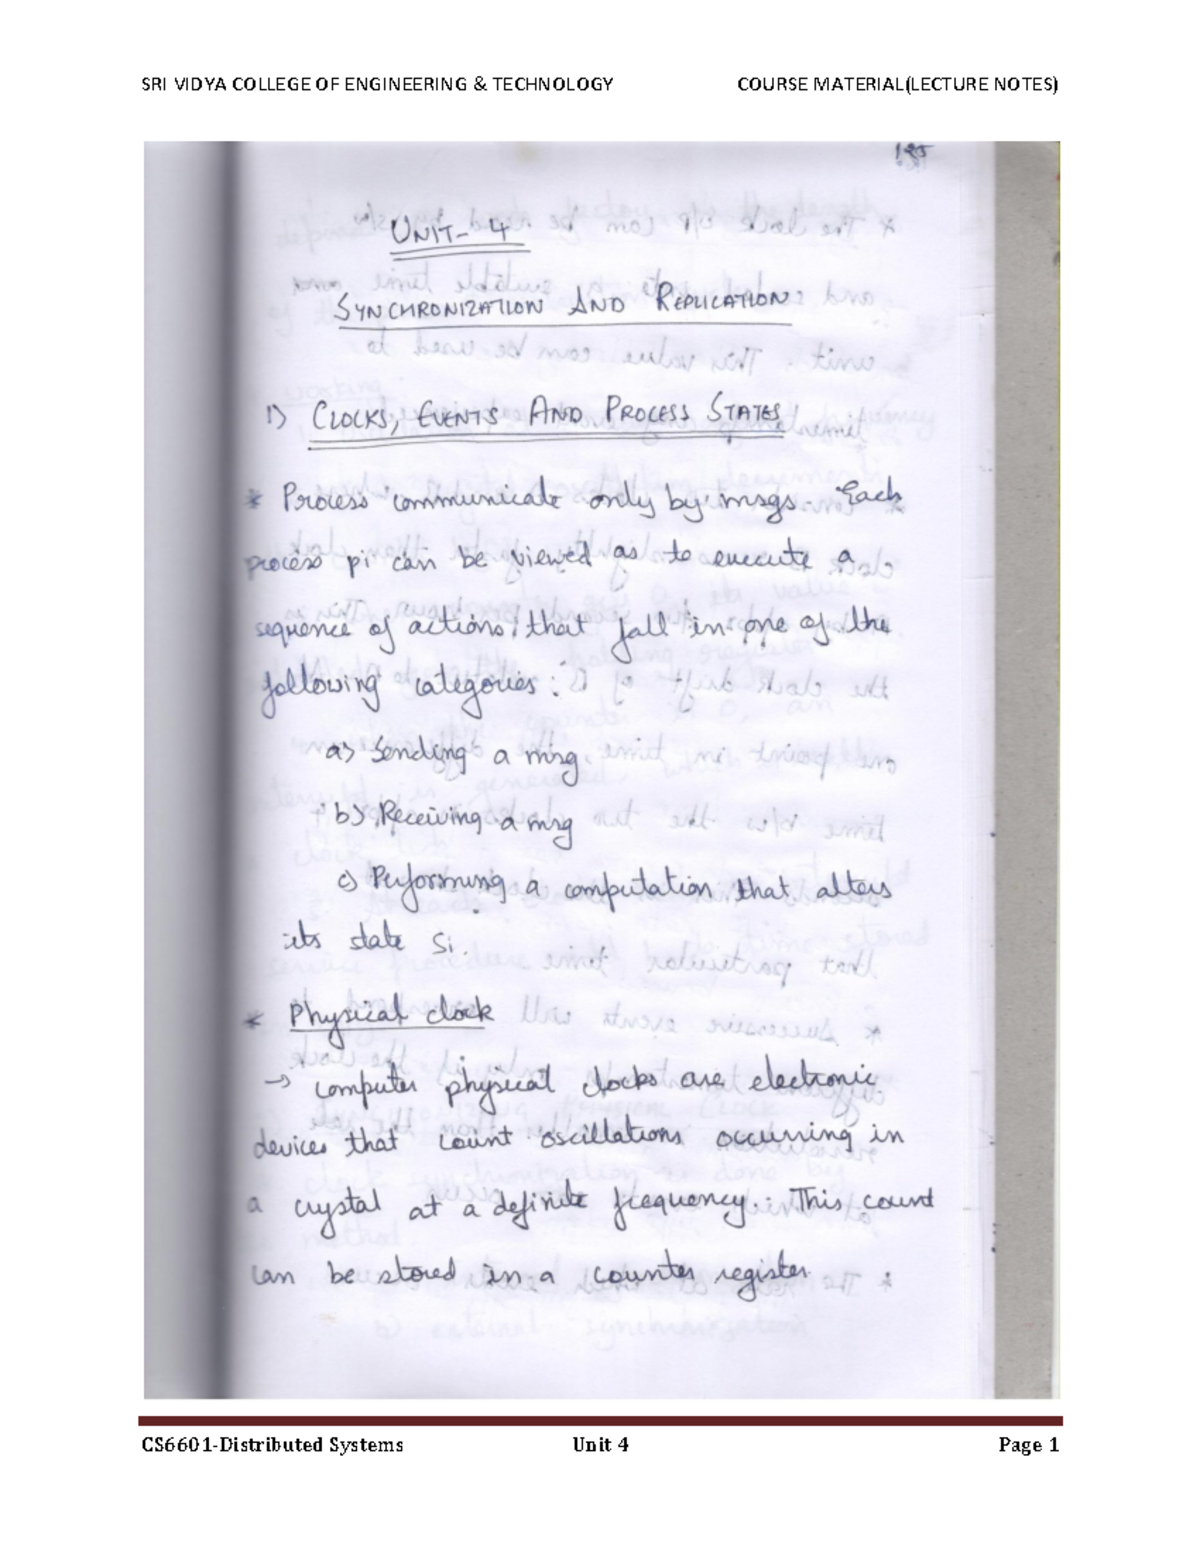 SRI VIDYA COLLEGE OF ENGINEERING & TECHNOLOGY COURSE MATERIAL(LECTURE NOTES)
UNIT- 4
SYNCHRONIZATION AND REPLICATION
1) CLOCKS, EVENTS AND PROCESS STATES
* Process communicate only by msgs. Each
process pi can be viewed as to execute a
sequence of actions, that fall in one of the
following categories:
a) Sending a msg
b) Receiving a msg
c) Performing a computation that alters
its state Si.
* Physical clock
→ computer physical clocks are electronic
devices that count oscillations occurring in
a crystal at a definite frequency. This count
can be stored in a counter register.
CS6601-Distributed Systems Unit 4 Page 1